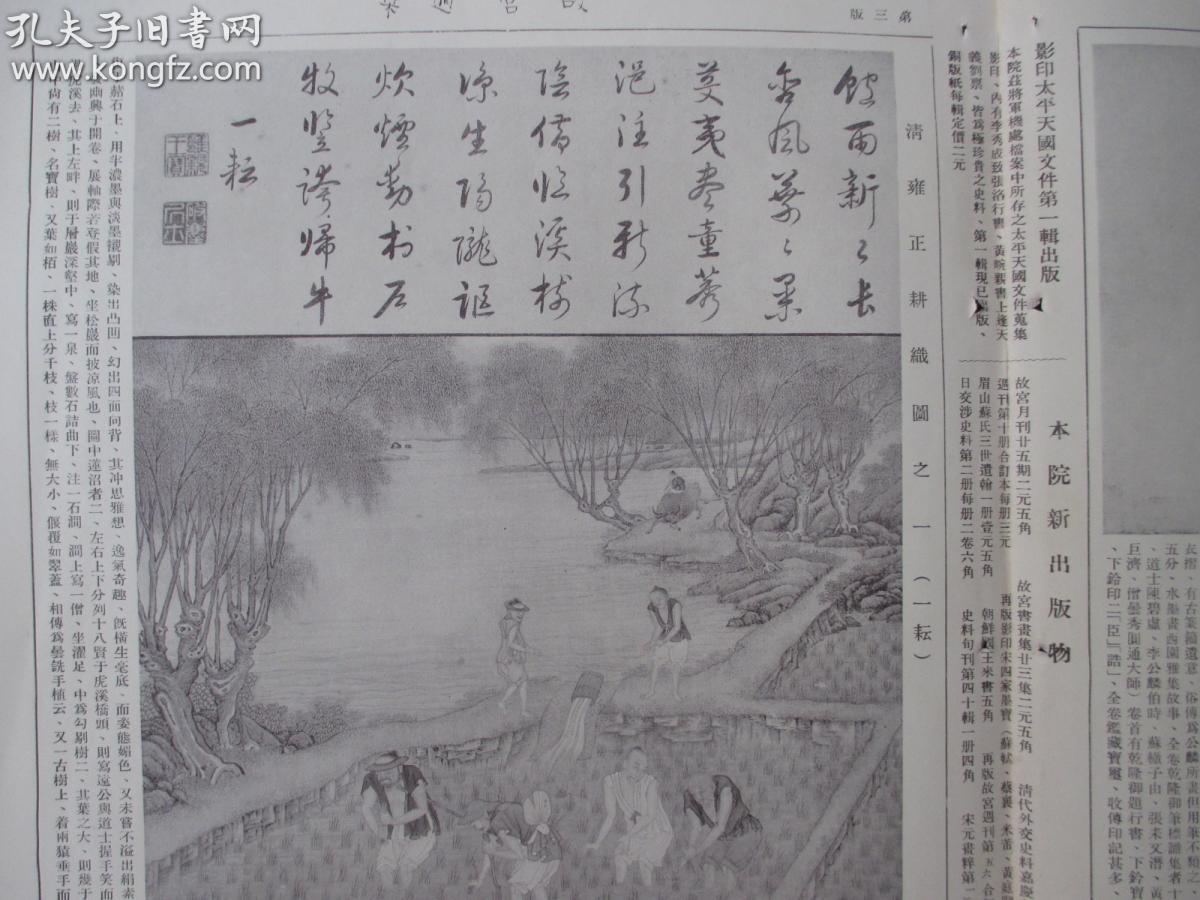 第三版
故宮週
孔夫子旧书网
www.kongfz.com
衣摺、有古篆籀遺意、俗傳為公麟所畫但用筆不類之、
五分、水墨畫西園雅集故事、全卷乾隆御筆標識集者十
、道士陳碧虛、李公麟伯時、蘇轍子由、張耒文潛、黃
巨濟、僧曇秀圓通大師）卷首有乾隆御題行書、下鈐寶
、下鈐印二「臣」「誥」、全卷鑑藏寶璽、收傳印記甚多、
影印太平天國文件第一輯出版
本院茲將軍機處檔案中所存之太平天國文件蒐集
影印、內有李秀成致張洛行書、黃畹親書上逢天
義劉禀、皆為極珍貴之史料、第一輯現已出版、
銅版紙每輯定價二元
本院新出版物
故宮月刊廿五期二元五角
故宮書畫集廿三集二元五角
清代外交史料嘉慶
週刊第十册合訂本每册三元
再版影印宋四家墨寶（蘇軾、蔡襄、米芾、黃庭堅
眉山蘇氏三世遺翰一册壹元五角
朝鮮國王米書五角
再版故宮週刊第五六合
日交涉史料第二册每册二卷六角
史料旬刊第四十輯一册四角
宋元書粹第二
清雍正耕織圖之一（一耘）
飽雨新々長
含風葉々柔
芟夷盡童莠
浥注引新流
陰借临溪樹
涼生隔隴謳
炊煙動村
牧豎誇歸牛
一耘
赭石上、用半濃墨與淡墨襯剔、染出凸凹、幻出四面向背、其冲思雅想、逸氣奇趣、旣橫生毫底、而姿態媚色、又未嘗不溢出絹素
幽興于開卷、展軸際若登假其地、坐松巖而披凉風也、圖中蓮沼者二、左右上下分列十八賢于虎溪橋頭、則寫遠公與道士握手笑而
虎溪去、其上左畔、則于層巖深壑中、寫一泉、盤數石詰曲下、注一石澗、澗上寫一僧、坐濯足、中為勾剔樹二、其葉之大、則幾于
尚有二樹、名寶樹、又葉如栢、一株直上分千枝、枝一樣、無大小、偃覆如翠蓋、相傳為曇銑手植云、又一古樹上、着兩猿垂手而